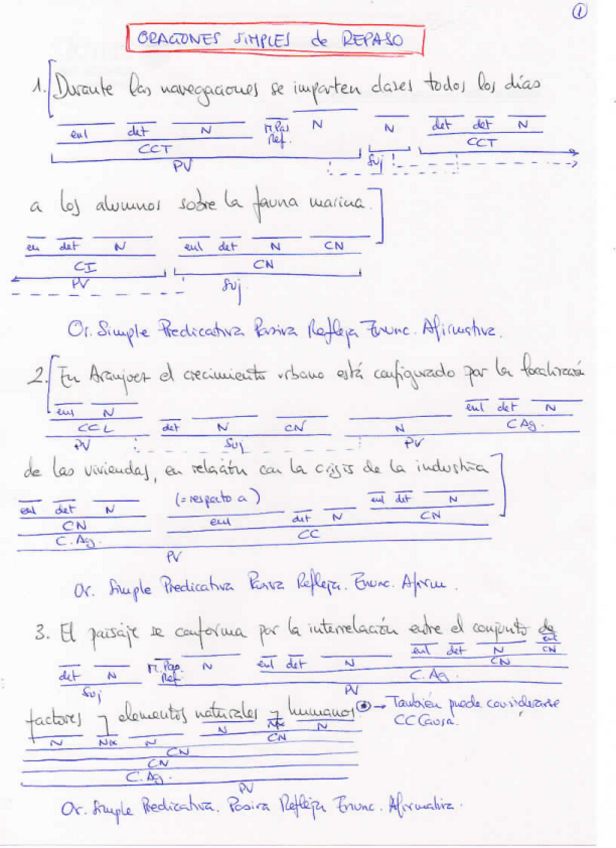 ①
ORACIONES SIMPLES de REPASO
1. Durante las navegaciones se imparten clases todos los días
enl det N m.Pas N N det det N
CCT Ref. Suj CCT
PV
a los alumnos sobre la fauna marina.
en det N enl det N CN
CI CN
PV Suj.
Or. Simple Predicativa Pasiva Refleja Enunc. Afirmativa.
2. En Aranjuez el crecimiento urbano está configurado por la focalización
enl N enl det N
CCL det N CN N C Ag.
PV Suj PV
de las viviendas, en relación con la crisis de la industria
(= respecto a)
enl det N enl det N enl det N
CN CN
C. Ag. CC
PV
Or. Simple Predicativa Pasiva Refleja. Enunc. Afirm.
3. El paisaje se conforma por la interrelación entre el conjunto de
enl det N enl
det N m. Pas Ref. N enl det N CN CN
Suj C. Ag.
PV
factores y elementos naturales y humanos → También puede considerarse
CC Causa.
N Nx N N Nx N
CN
CN
CN
C. Ag.
PV
Or. Simple Predicativa. Pasiva Refleja Enunc. Afirmativa.